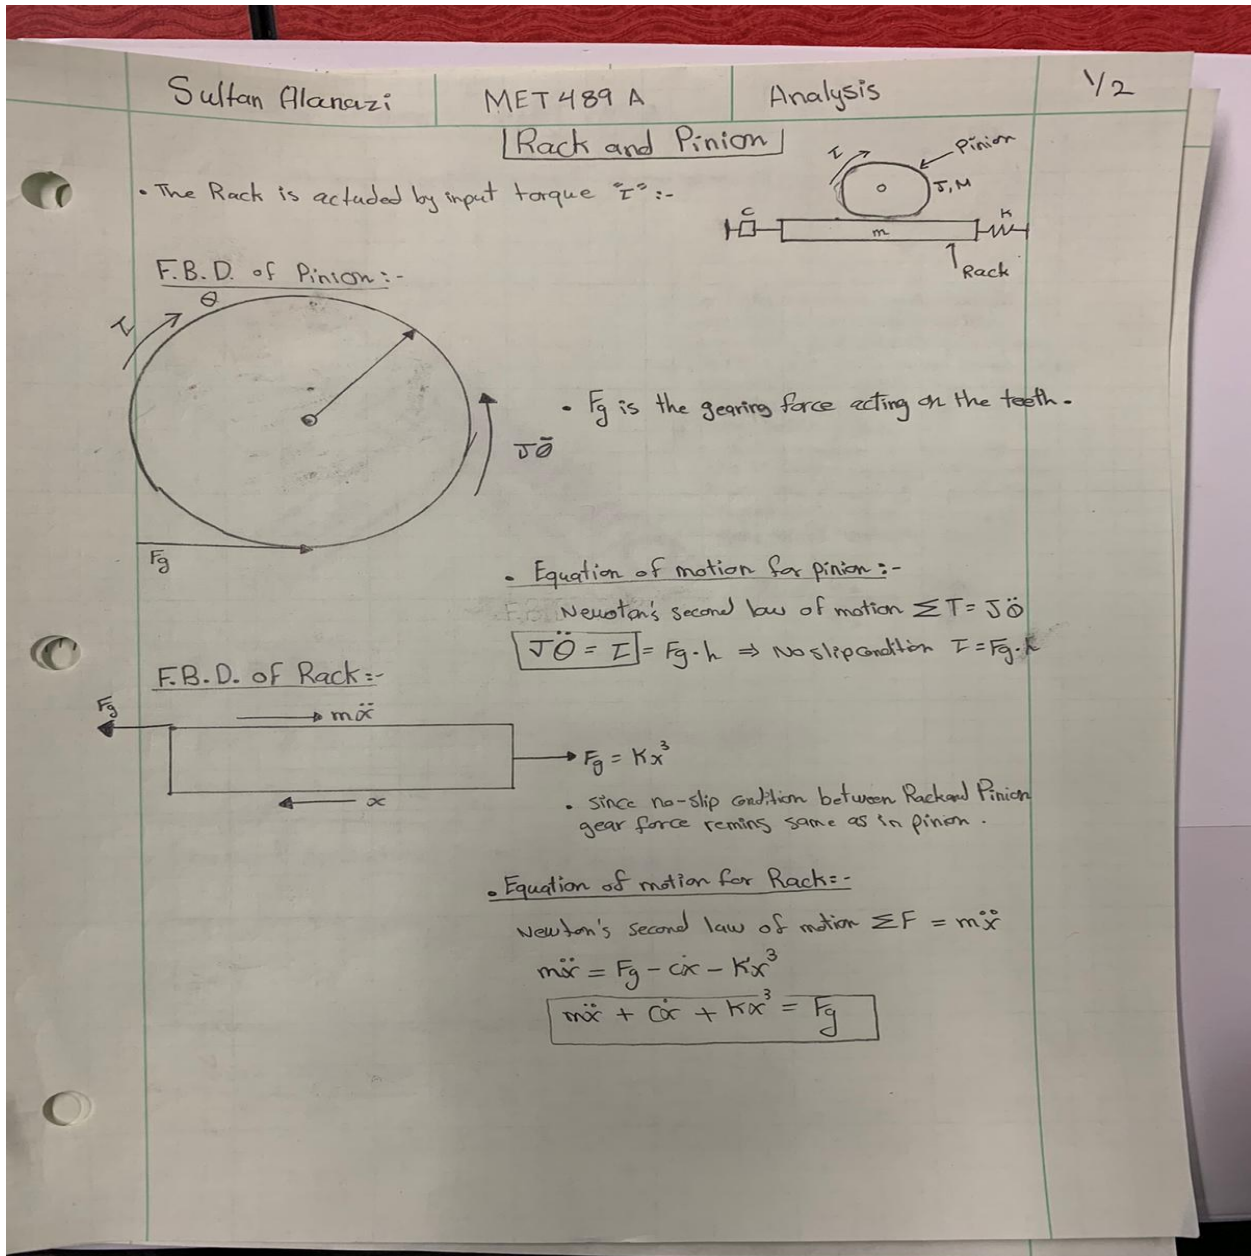 Sultan Alanazi MET 489 A Analysis 1/2
Rack and Pinion
τ Pinion
J, M
• The Rack is actuded by input torque "τ" :-
c K
m
Rack
F.B.D. of Pinion :-
θ
τ
• Fg is the gearing force acting on the teeth.
Jθ̈
Fg
• Equation of motion for pinion :-
Newton's second law of motion ΣT = Jθ̈
Jθ̈ = τ = Fg · h ⇒ No slip condition τ = Fg ·
F.B.D. of Rack :-
Fg
mẍ
Fg = Kx³
x
• since no-slip condition between Rack and Pinion
gear force remins same as in pinion.
• Equation of motion for Rack :-
Newton's second law of motion ΣF = mẍ
mẍ = Fg - cẋ - Kx³
mẍ + cẋ + Kx³ = Fg